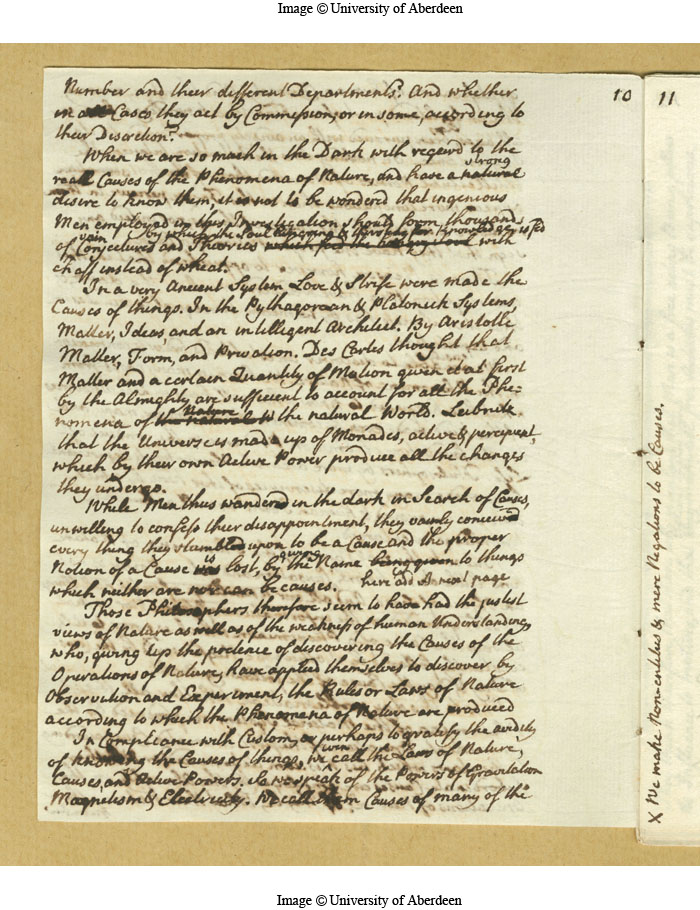 Image © University of Aberdeen
10
11
Number and their different Departments? And whether
in all Cases they act by Commission, or in some, according to
their Discretion?
When we are so much in the Dark with regard to the
strong
reall Causes of the Phenomena of Nature, and have a natural
desire to know them, it is not to be wondered that ingenious
Men employed in this Investigation should form thousands
by which the Soul hungering & thirsting for Knowledge is fed
vain
of Conjectures and Theories which feed the with
chaff instead of wheat.
In a very Ancient System Love & Strife were made the
Causes of things. In the Pythagorean & Platonick Systems,
Matter, Ideas, and an intelligent Architect. By Aristotle
Matter, Form, and Privation. Des Cartes thought that
Matter and a certain Quantity of Motion given it at first
by the Almighty are sufficient to account for all the Phe=
Nature
nomena of the natural the natural World. Leibnitz
that the Universe is made up of Monades, active & percipient,
which by their own Active Power produce all the changes
they undergo.
While Men thus wandered in the dark in Search of Causes,
unwilling to confess their disappointment, they vainly conceived
every thing they stumbled upon to be a Cause and the proper
is giving
Notion of a Cause was lost, by the Name being given to things
which neither are nor can be causes. here add A next page
Those Philosophers therefore seem to have had the justest
views of Nature as well as of the weakness of human Understanding
who, giving up the pretence of discovering the Causes of the
Operations of Nature, have applied themselves to discover by
Observation and Experiment, the Rules or Laws of Nature
according to which the Phenomena of Nature are produced
In Compliance with Custom, or perhaps to gratify the avidity
even
of knowing the Causes of things, we call the Laws of Nature,
Causes, and Active Powers. So we speak of the Powers of Gravitation
Magnetism & Electricity. We call them Causes of many of the
X We make Non-entities & mere Negations to be Causes.
Image © University of Aberdeen